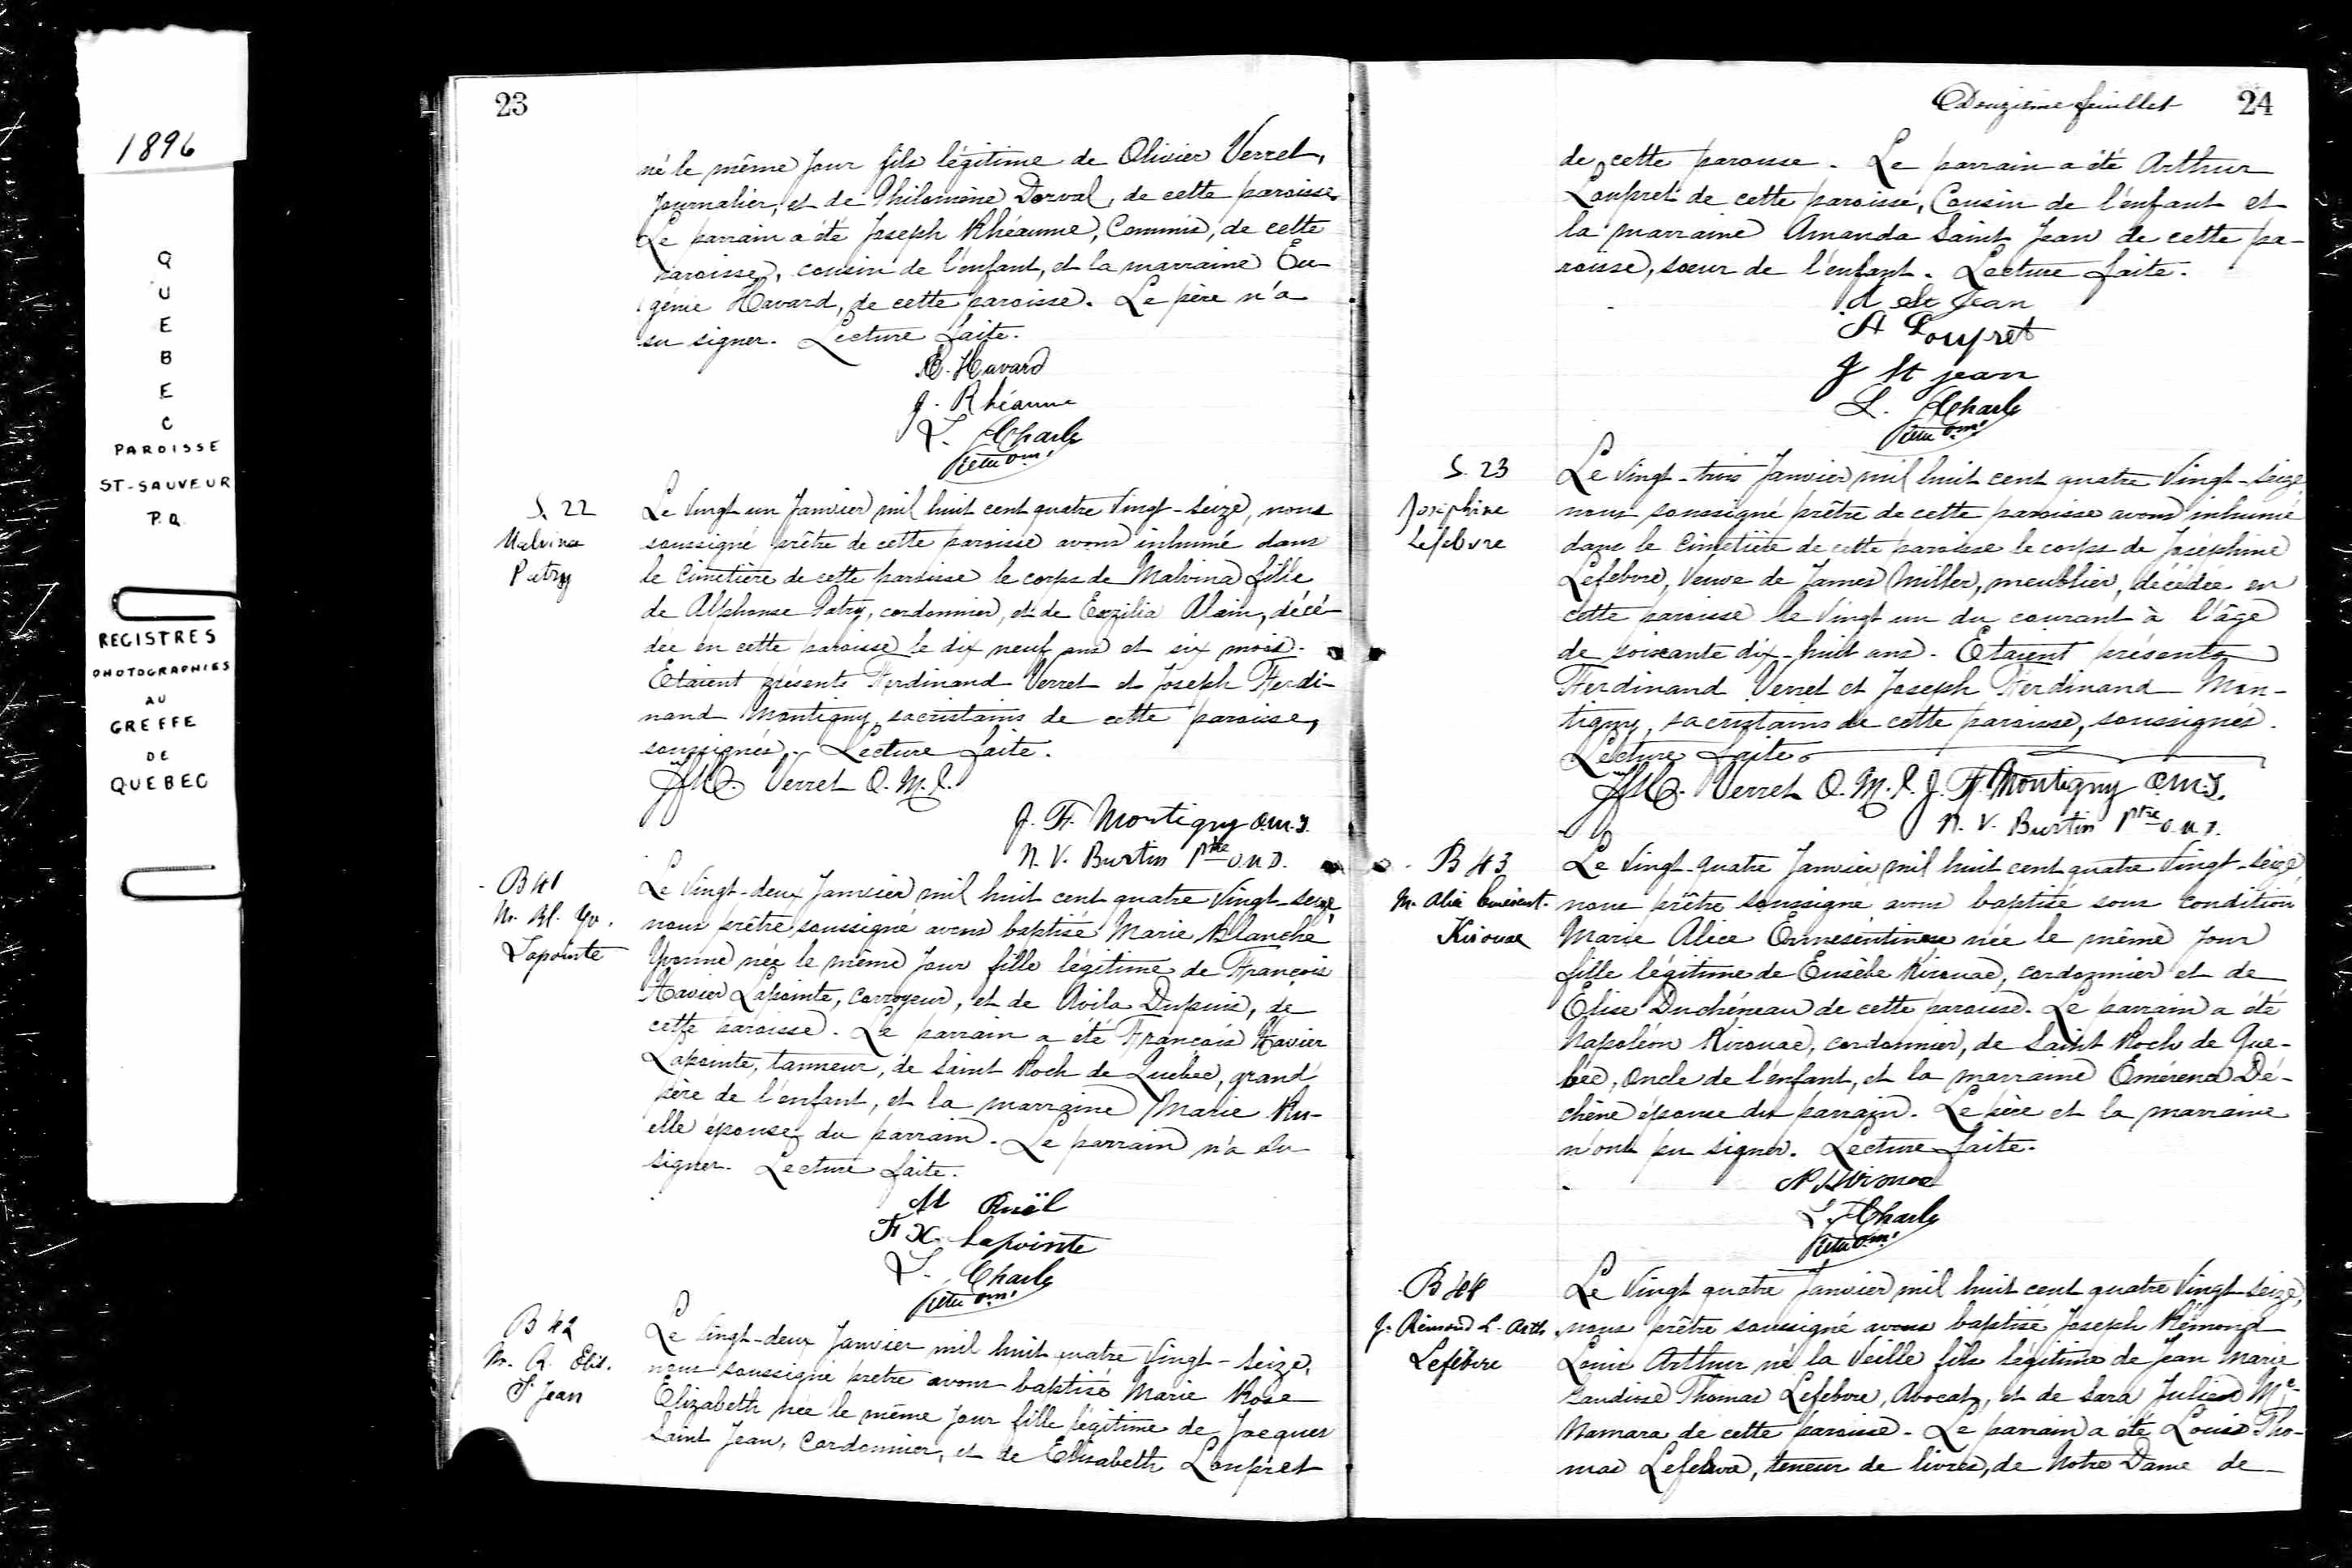 1896
Q
U
E
B
E
C
PAROISSE
ST-SAUVEUR
P.Q.
REGISTRES
PHOTOGRAPHIES
AU
GREFFE
DE
QUEBEC
23
né le même jour fils légitime de Olivier Verret,
journalier, et de Philomène Dorval, de cette paroisse.
Le parrain a été Joseph Rhéaume, Commis, de cette
paroisse, cousin de l'enfant, et la marraine Eu-
génie Havard, de cette paroisse. Le père n'a
su signer. Lecture faite.
E. Havard
J. Rhéaume
L. Charles
Ptre o.m.i.
S. 22
Malvina
Patry
Le vingt un Janvier mil huit cent quatre vingt-seize, nous
soussigné prêtre de cette paroisse avons inhumé dans
le cimetière de cette paroisse le corps de Malvina fille
de Alphonse Patry, cordonnier, et de Exzilia Alain, décé-
dée en cette paroisse le dix neuf ans et six mois.
Etaient présents Ferdinand Verret et Joseph Ferdi-
nand Montigny sacristains de cette paroisse,
soussignés. Lecture faite.
Verret O.M.I.
J. F. Montigny O.M.I.
N. V. Burtin Ptre O.M.I.
B 41
M. Bl. Yv.
Lapointe
Le vingt-deux Janvier mil huit cent quatre vingt-seize,
nous prêtre soussigné avons baptisé Marie Blanche
Yvonne née le même jour fille légitime de François
Xavier Lapointe, corroyeur, et de Avila Dupuis, de
cette paroisse. Le parrain a été François Xavier
Lapointe, tanneur, de Saint Roch de Québec, grand
père de l'enfant, et la marraine Marie Ru-
elle épouse du parrain. Le parrain n'a su
signer. Lecture faite.
M Ruël
F X Lapointe
L. Charles
Ptre o.m.i.
B 42
M. R. Elis.
St Jean
Le vingt-deux Janvier mil huit quatre vingt-seize,
nous soussigné prêtre avons baptisé Marie Rose
Elizabeth née le même jour fille légitime de Jacques
Saint Jean, cordonnier, et de Elisabeth Loupret
Douzième feuillet 24
de cette paroisse. Le parrain a été Arthur
Loupret de cette paroisse, Cousin de l'enfant et
la marraine Amanda Saint Jean de cette pa-
roisse, soeur de l'enfant. Lecture faite.
A St Jean
A Loupret
J St jean
L. Charles
Ptre o.m.i.
S. 23
Joséphine
Lefebvre
Le vingt-trois Janvier mil huit cent quatre vingt-seize
nous soussigné prêtre de cette paroisse avons inhumé
dans le cimetière de cette paroisse le corps de Joséphine
Lefebvre, veuve de James Miller, meublier, décédée en
cette paroisse le vingt un du courant à l'âge
de soixante dix-huit ans. Etaient présents
Ferdinand Verret et Joseph Ferdinand Mon-
tigny, sacristains de cette paroisse, soussignés.
Lecture faite.
Verret O.M.I. J. F. Montigny O.M.I.
N. V. Burtin Ptre O.M.I.
B 43
M. Alice
Kirouac
Le vingt-quatre Janvier mil huit cent quatre vingt-seize,
nous prêtre soussigné avons baptisé sous condition
Marie Alice née le même jour
fille légitime de Eusèbe Kirouac, cordonnier et de
Elise Duchéneau de cette paroisse. Le parrain a été
Napoléon Kirouac, cordonnier, de Saint Roch de Qué-
bec, oncle de l'enfant, et la marraine Emérena Dé-
chène épouse du parrain. Le père et la marraine
n'ont pu signer. Lecture faite.
N Kirouac
L. Charles
Ptre o.m.i.
B 44
J. Rémond L. Arth
Lefebvre
Le vingt quatre Janvier mil huit cent quatre vingt-seize,
nous prêtre soussigné avons baptisé Joseph Rémond
Louis Arthur né la veille fils légitime de Jean Marie
Gaudiose Thomas Lefebvre, Avocat, et de Sara Julia Mc-
Namara de cette paroisse. Le parrain a été Louis Tho-
mas Lefebvre, teneur de livres, de Notre Dame de